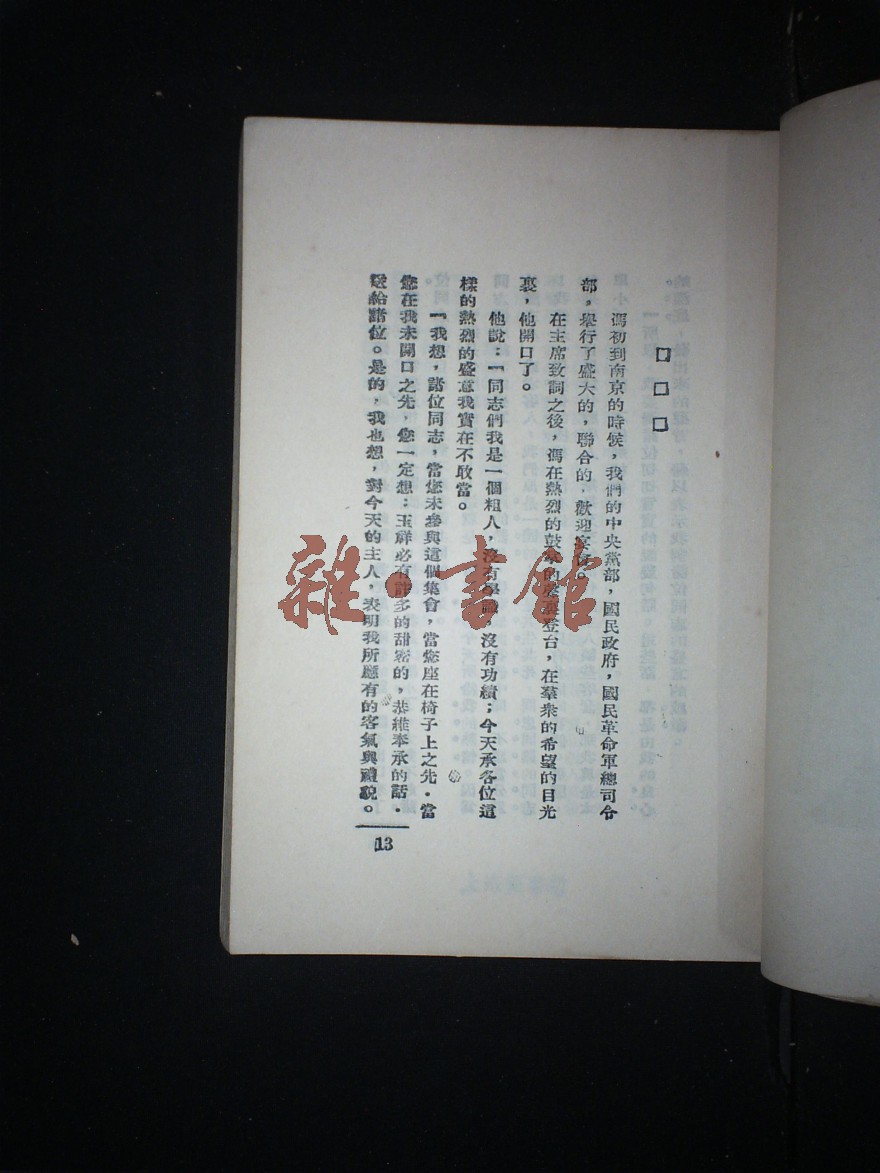 □□□
馮初到南京的時候，我們的中央黨部，國民政府，國民革命軍總司令
部，舉行了盛大的，聯合的，歡迎宴。
在主席致詞之後，馮在熱烈的鼓掌的登台，在羣衆的希望的目光
裏，他開口了。
他說：「同志們我是一個粗人，沒有學識，沒有功績；今天承各位這
樣的熱烈的盛意我實在不敢當。
「我想，諸位同志，當您未參與這個集會，當您座在椅子上之先，當
您在我未開口之先，您一定想：玉祥必有許多的甜密的，恭維奉承的話，
送給諸位。是的，我也想，對今天的主人，表明我所應有的客氣與禮貌。
13
雜·書館